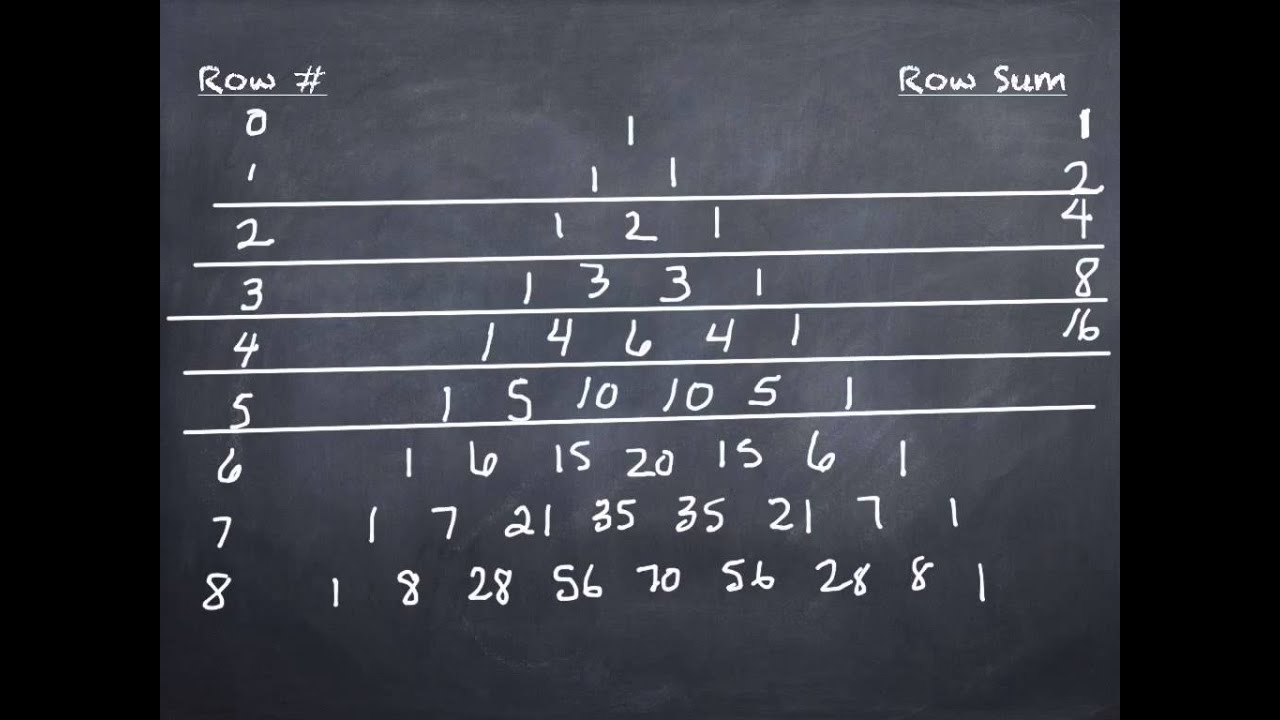 Row # Row Sum
0 1 1
1 1 1 2
2 1 2 1 4
3 1 3 3 1 8
4 1 4 6 4 1 16
5 1 5 10 10 5 1
6 1 6 15 20 15 6 1
7 1 7 21 35 35 21 7 1
8 1 8 28 56 70 56 28 8 1